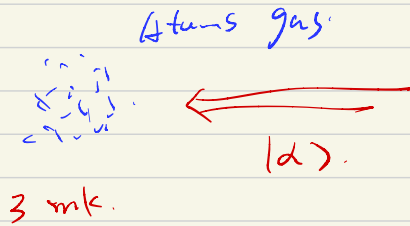 Atoms gas.
|α⟩.
3 mk.